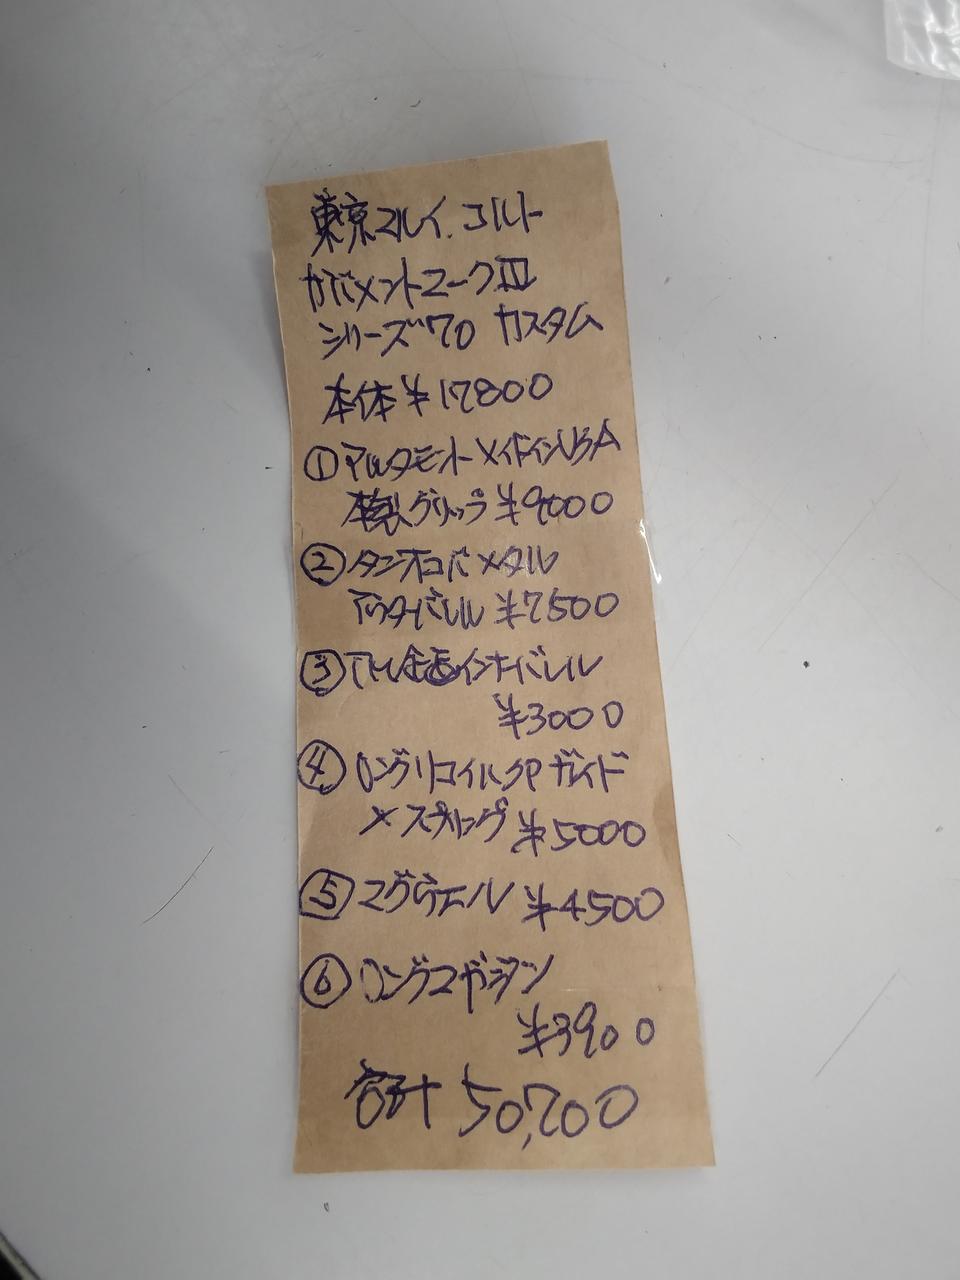 東京マルイ.コルト
ガバメントマークⅢ
シリーズ'70 カスタム
本体 ¥17800
①アルタモントメイドインUSA
木製グリップ ¥9000
②タニオコバメタル
アウターバレル ¥7500
③PDI企画インナーバレル
¥3000
④ロングリコイルSPガイド
×スプリング ¥5000
⑤マグウエル ¥4500
⑥ロングマガジン
¥3900
合計 50,700